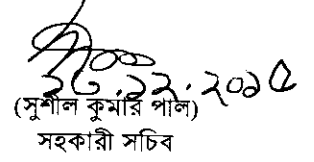 ২৮.১২.২০১৫
(সুশীল কুমার পাল)
সহকারী সচিব